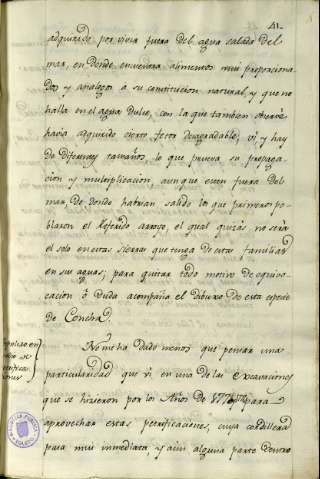 41.
adquirido por vivir fuera del agua salada del
mar, en donde encuentra alimentos mui proporciona
dos y analogos a su constitucion natural, y que no
halla en el agua dulce, con la que tambien observè
havia adquirido cierto fetor desagradable; vi y hay
de diferentes tamaños, lo que prueva su propaga
cion y multiplicacion aunque esten fuera del
mar, de donde habrian salido los que primero po
blaron el referido arroyo, el qual quizás no será
el solo en estas sierras que tenga de estas familias
en sus aguas; para quitar todo motivo de equivo
cacion ò duda acompaña el dibuxo de esta especie
de Concha.
No me ha dado menos que pensar una
particularidad que vi en una de las excavaciones
que se hicieron por los Años de para
aprovechar estas petrificaciones, cuya cordillera
para mui inmediata y aun alguna parte dentro